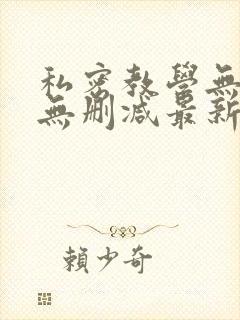 私密教學無
無删减最新
賴少奇